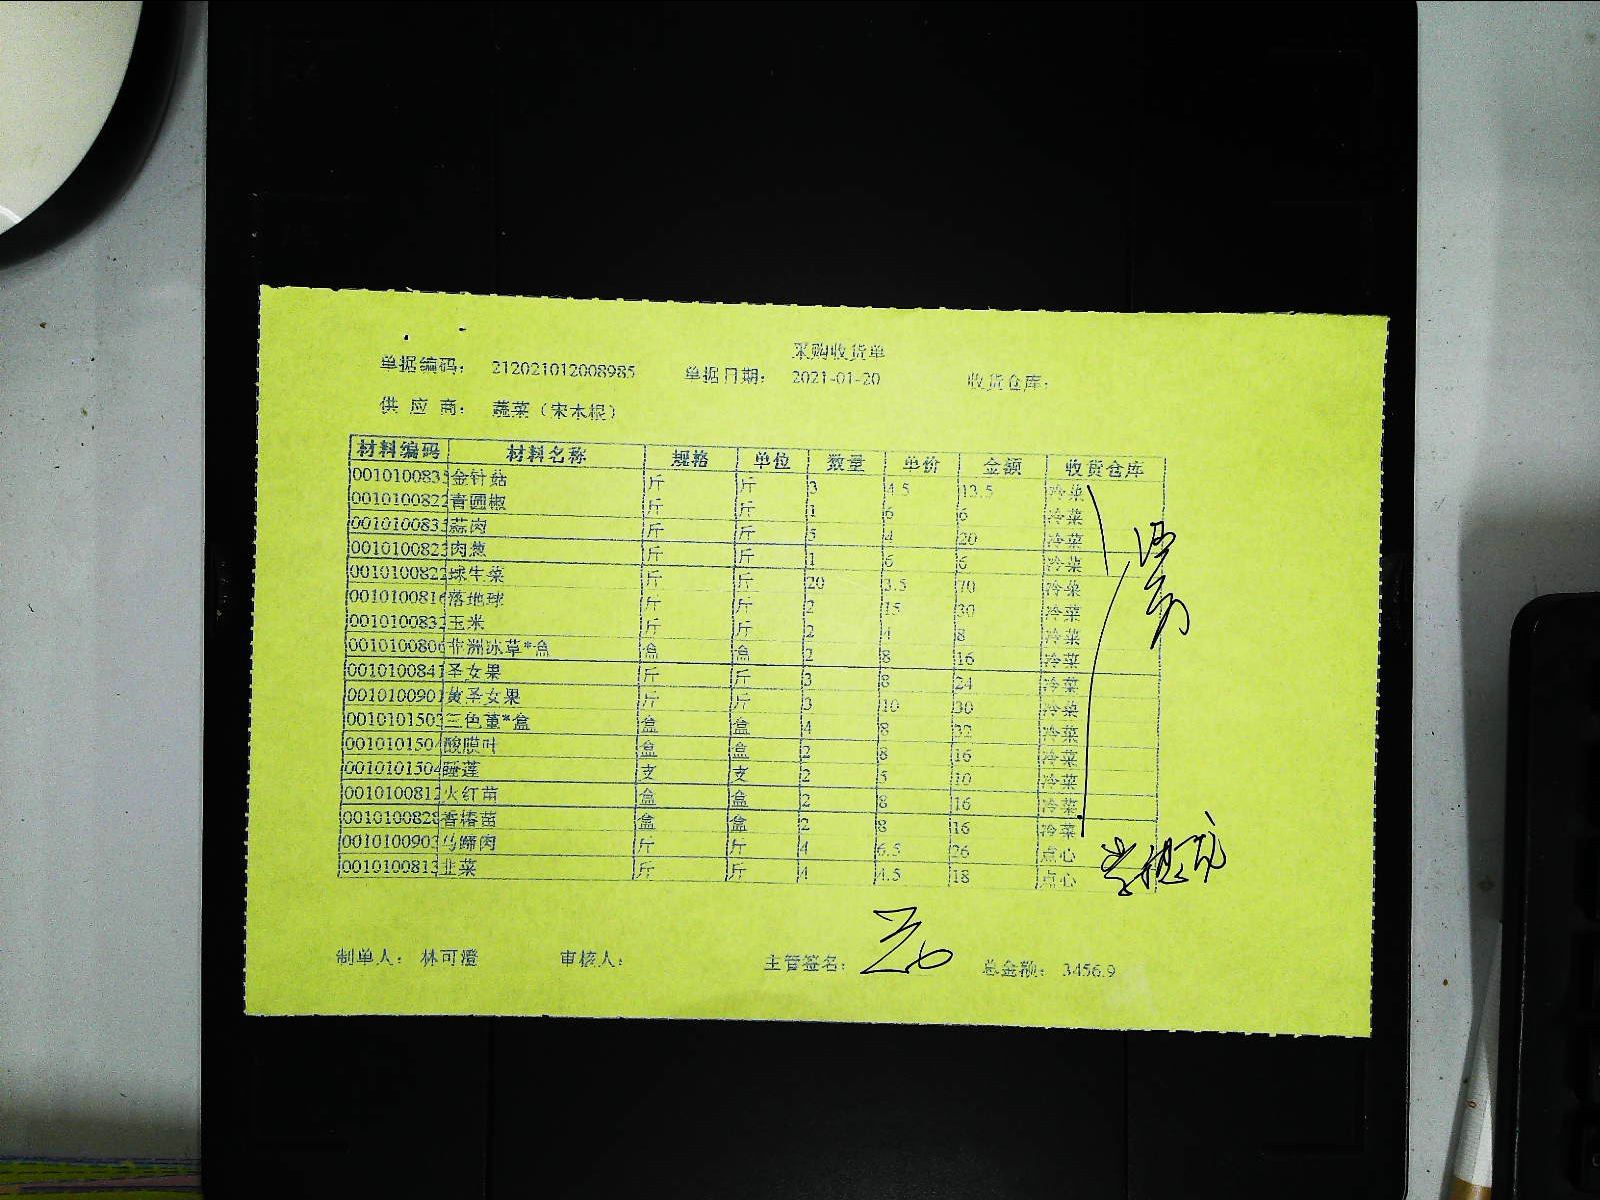 采购收货单
单据编码: 212021012008985 单据日期: 2021-01-20 收货仓库:
供 应 商: 蔬菜(宋木根)
材料编码 材料名称 规格 单位 数量 单价 金额 收货仓库
0010100835 金针菇 斤 斤 3 4.5 13.5 冷菜
0010100822 青圆椒 斤 斤 1 6 6 冷菜
0010100835 蒜肉 斤 斤 5 4 20 冷菜
0010100823 肉葱 斤 斤 1 6 6 冷菜
0010100822 球生菜 斤 斤 20 3.5 70 冷菜
0010100816 落地球 斤 斤 2 15 30 冷菜
0010100832 玉米 斤 斤 2 4 8 冷菜
0010100806 非洲冰草*盒 盒 盒 2 8 16 冷菜
0010100841 圣女果 斤 斤 3 8 24 冷菜
0010100901 黄圣女果 斤 斤 3 10 30 冷菜
0010101503 三色堇*盒 盒 盒 4 8 32 冷菜
0010101504 酸膜叶 盒 盒 2 8 16 冷菜
0010101504 睡莲 支 支 2 5 10 冷菜
0010100812 火红苗 盒 盒 2 8 16 冷菜
0010100828 香椿苗 盒 盒 2 8 16 冷菜
0010100903 马蹄肉 斤 斤 4 6.5 26 点心
0010100813 韭菜 斤 斤 4 4.5 18 点心
制单人: 林可澄 审核人: 主管签名: 总金额: 3456.9